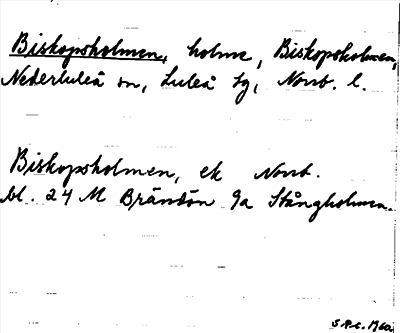 Biskopsholmen, holme, Biskopsholmen,
Nederluleå sn, Luleå tg, Norrb. l.
Biskopsholmen, ek Norrb.
bl. 24 M Brändön 9a Stångholmen.
S.R.C. 1960.